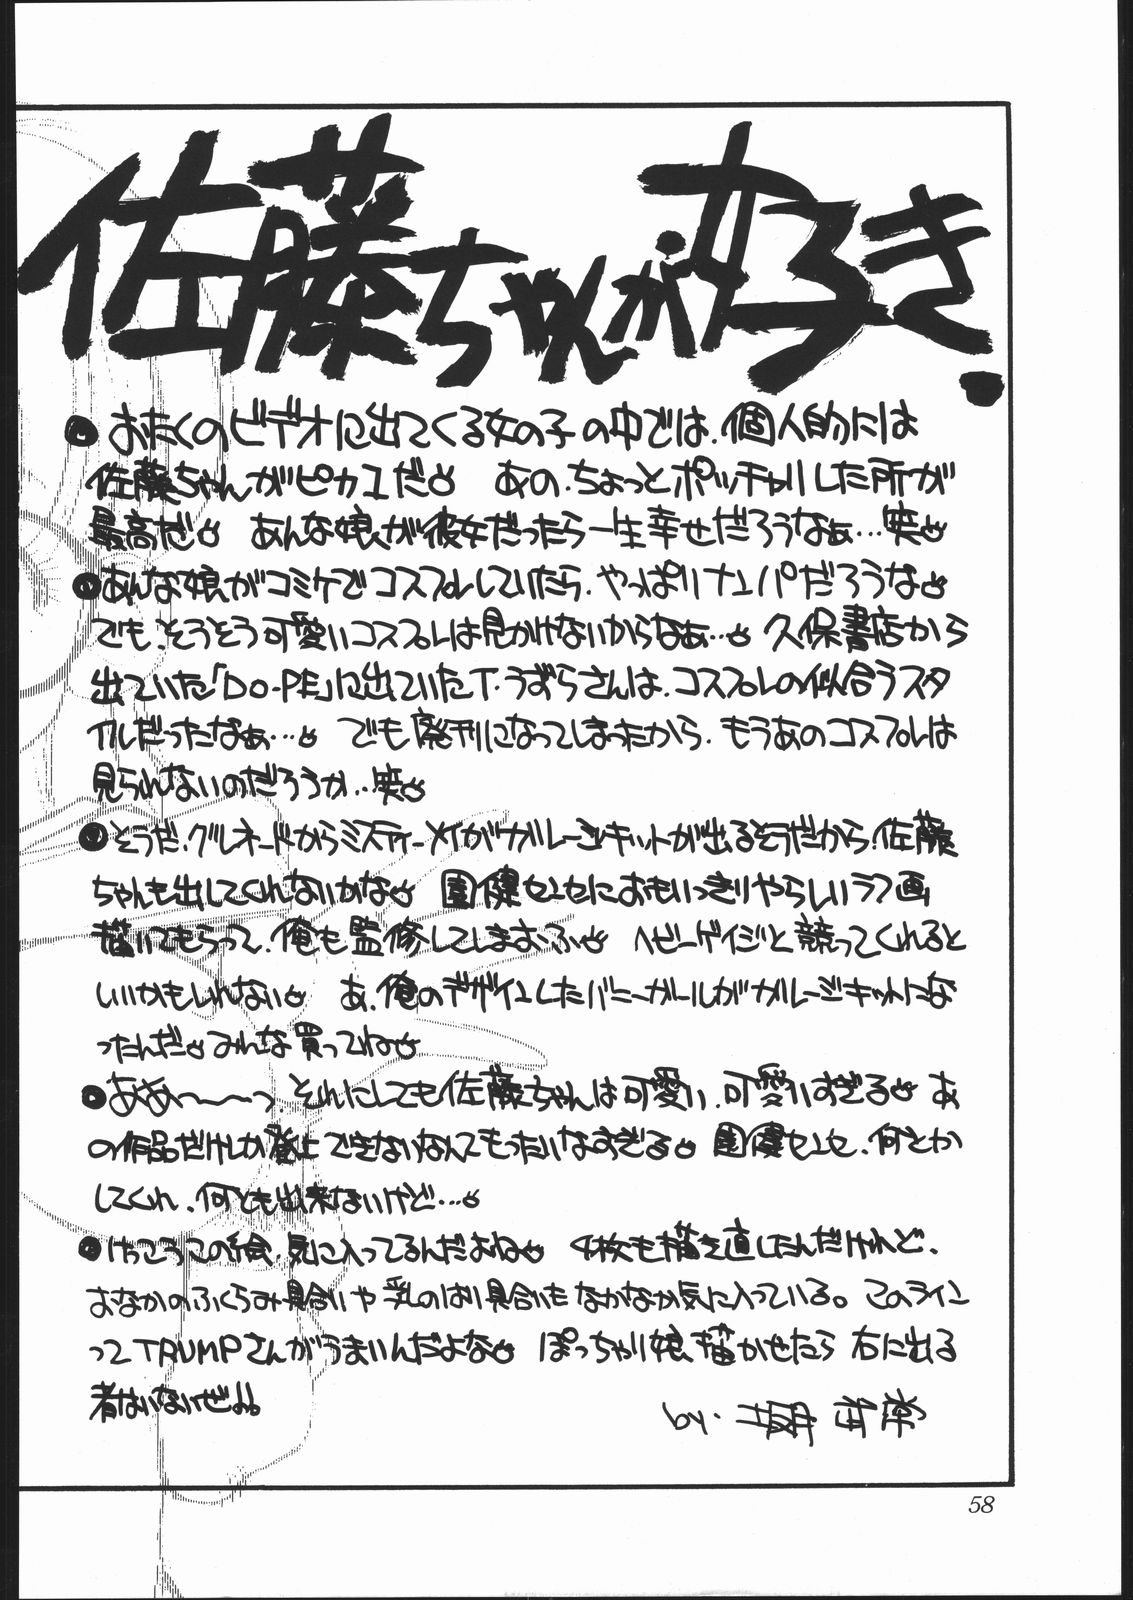 佐藤ちゃんが好き.
●おたくのビデオに出てくる女の子の中では、個人的には
佐藤ちゃんがピカ1だ♡ あの、ちょっとポッチャリした所が
最高だ♡ あんな娘が彼女だったら一生幸せだろうなぁ…笑♡
●あんな娘がコミケでコスプレしていたら、やっぱりナンパだろうな♡
でも、そうそう可愛いコスプレは見かけないからなぁ…♡ 久保書店から
出ていた「DO-PE」に出ていたT・うずらさんは、コスプレの似合うスタ
イルだったなぁ…♡ でも廃刊になってしまったから、もうあのコスプレは
見られないのだろうか…笑♡
●そうだ、グルネードからミスティーメイがガレージキットが出るそうだから、佐藤
ちゃんも出してくれないかな♡ 園健センセにおもいっきりやらしいラフ画
描いてもらって、俺も監修してしまおふ♡ ヘビーゲイジと競ってくれると
いいかもしれない♡ あ、俺のデザインしたバニーガールがガレージキットにな
ったんだ♡みんな買ってね♡
●ああ〜〜っ、それにしても佐藤ちゃんは可愛い、可愛いすぎる♡ あ
の作品だけしか登上できないなんてもったいなすぎる♡ 園健センセ、何とか
してくれ、何とも出来ないけど…♡
●けっこうこの絵、気に入ってるんだよね♡ 4枚も描き直したんだけれど、
おなかのふくらみ具合いや乳のはり具合いもなかなか気に入っている。このライン
って TRUMPさんがうまいんだよな♡ ぽっちゃり娘描かせたら右に出る
者はいないぜ!!
by.
58